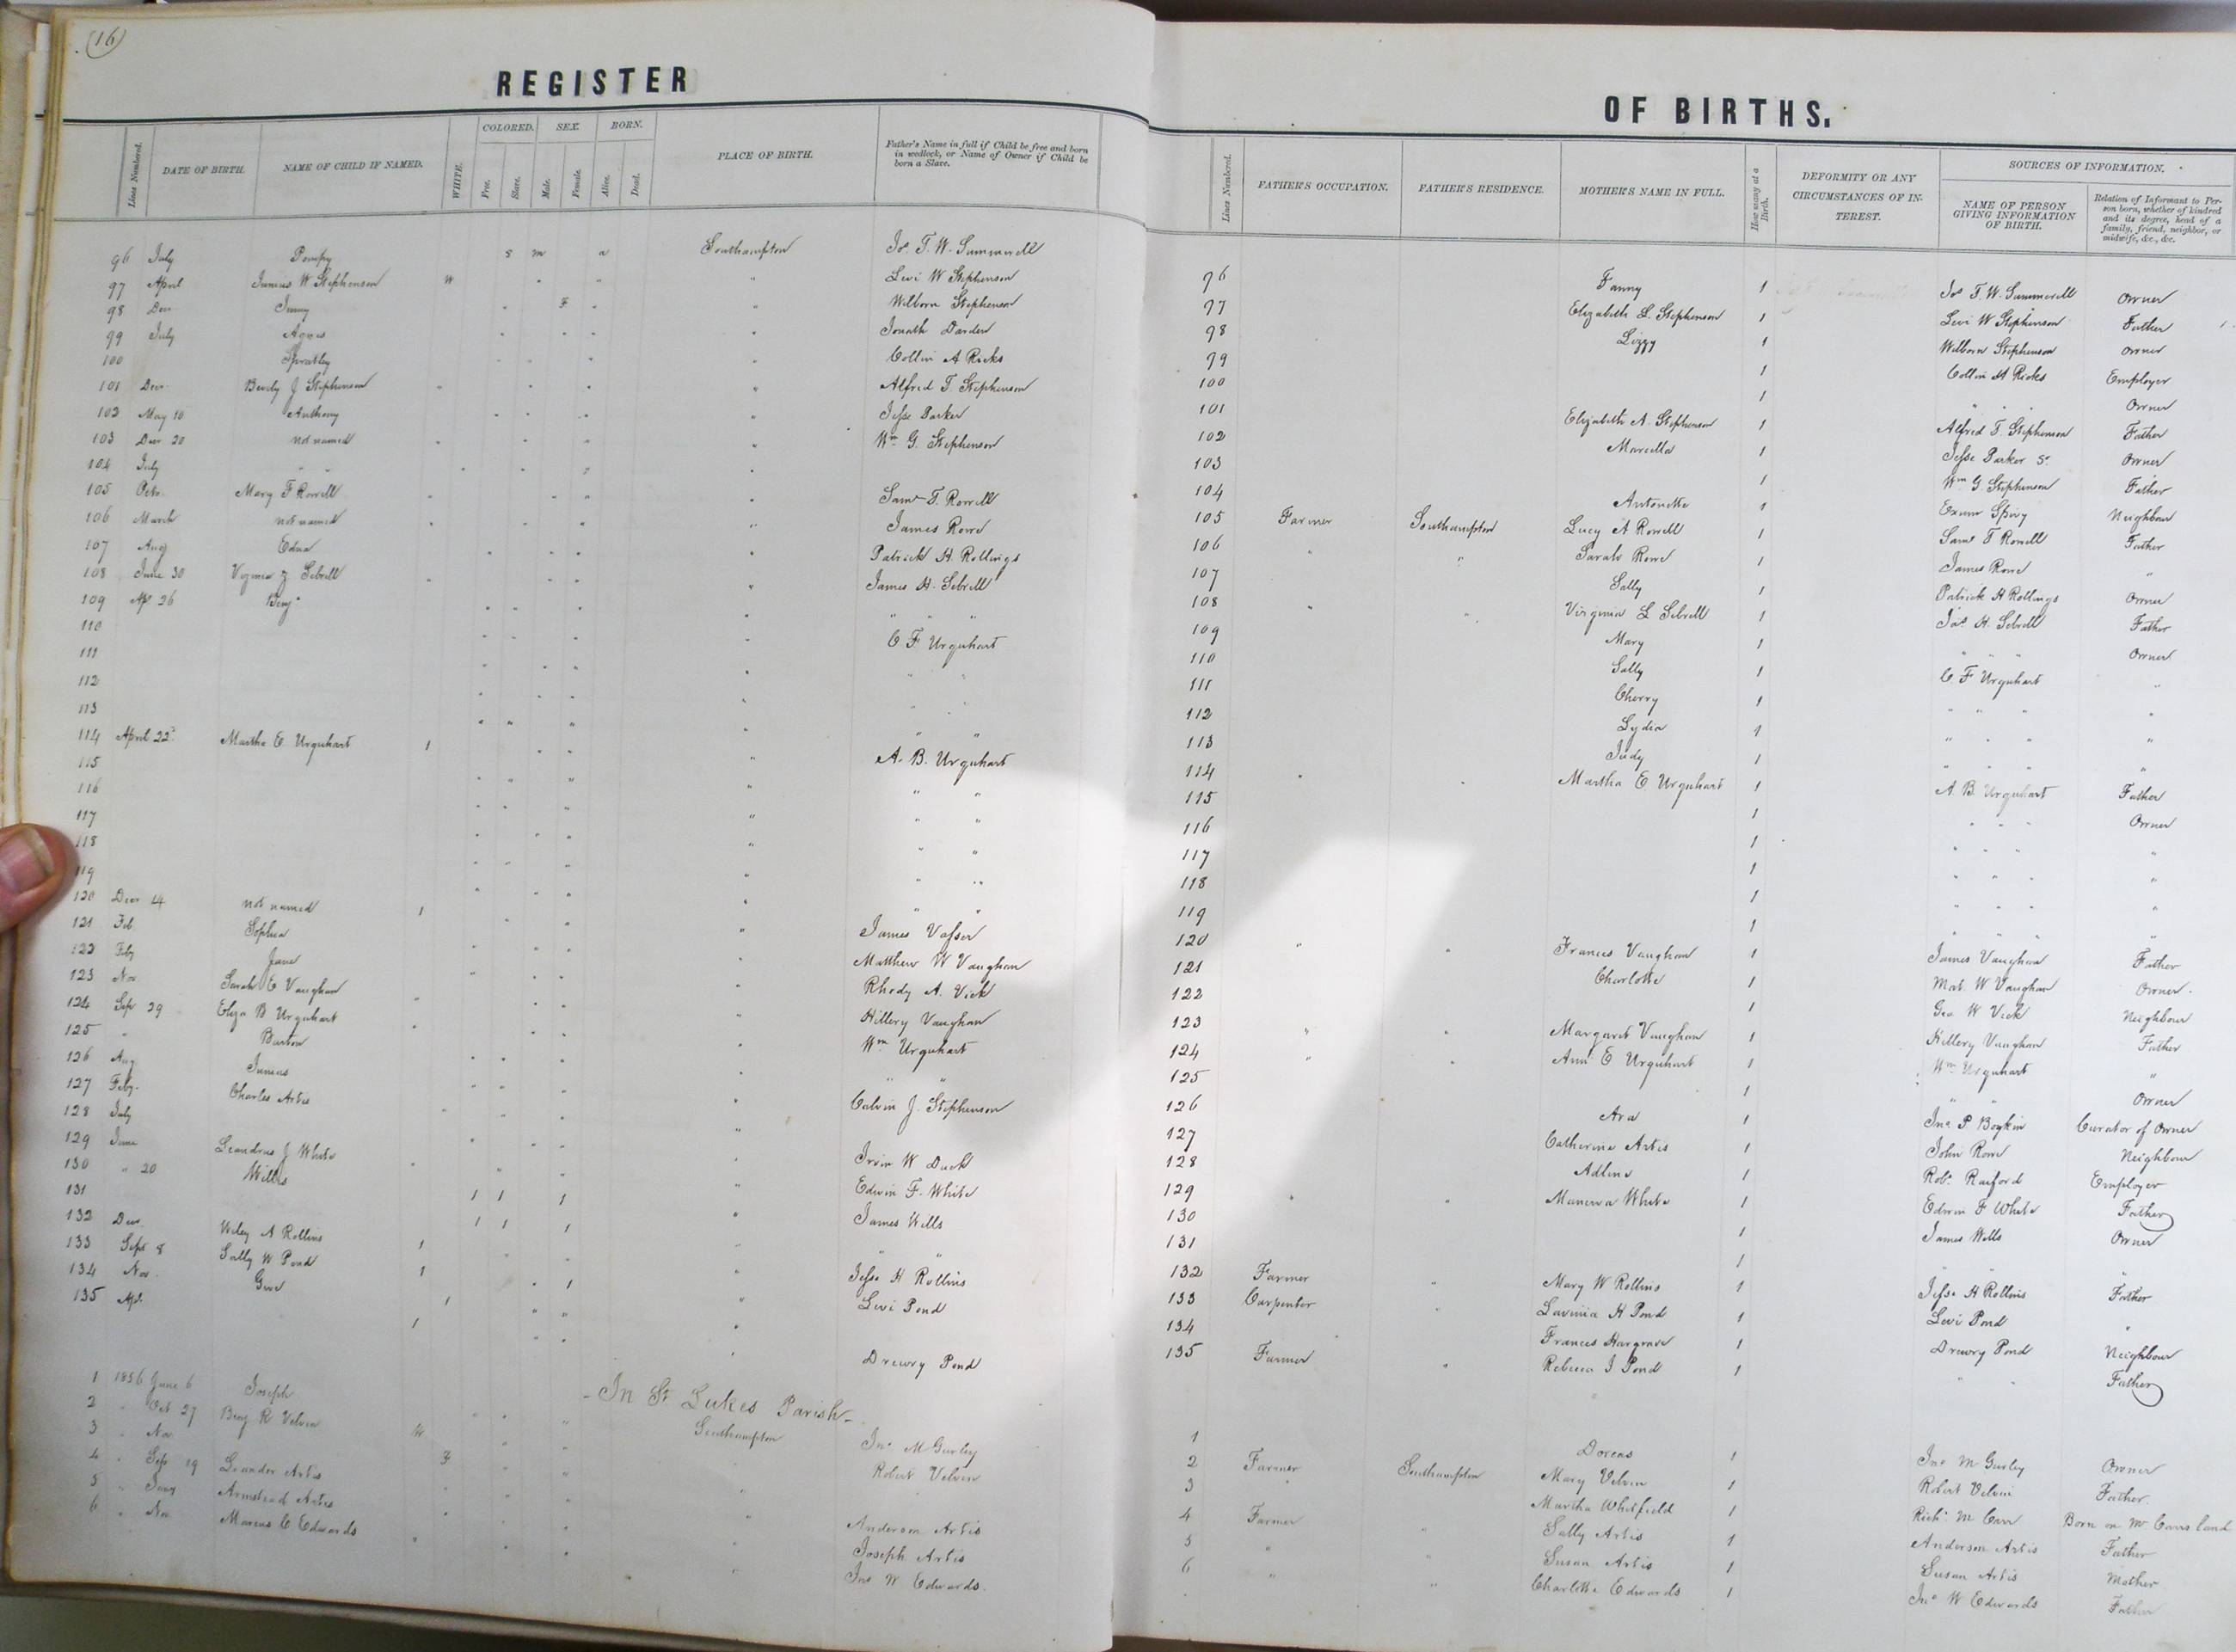 (16)
REGISTER
Lines Numbered. DATE OF BIRTH. NAME OF CHILD IF NAMED. WHITE. COLORED. Free. Slave. SEX. Male. Female. BORN. Alive. Dead. PLACE OF BIRTH. Father's Name in full if Child be free and born in wedlock, or Name of Owner if Child be born a Slave.
96 July Pompy s m a Southampton Jos T. W. Summerell
97 April Junius W. Stephenson W " " " Levi W Stephenson
98 Decr Jinny " F " " Wilborn Stephenson
99 July Agnes " " " " Jonath Darden
100 Spratley " " " Collin A Ricks
101 Decr Beverly J Stephenson " " " " Alfred T. Stephenson
102 May 10 Anthony " " " " Jesse Parker
103 Decr 20 not named " " " " Wm G. Stephenson
104 July " "
105 Octr Mary F Rowell " " " Saml T. Rowell
106 March not named " " " " James Rowe
107 Aug Edna " " " " Patrick H. Rollings
108 June 30 Virginia Sebrell " " " " James H. Sebrell
109 Ap. 26 Benj " " " " " " "
110 C. F. Urquhart
111 " "
112 " "
113 " "
114 April 22d Martha E Urquhart 1 A. B. Urquhart
115 " "
116 " "
117 " "
118 " "
119 " "
120 Decr 14 not named 1 James Vasser
121 Feb Sophia Matthew W Vaughan
122 Feby Jane Rhody A. Vick
123 Nov Sarah E Vaughan Hillery Vaughan
124 Sep 29 Eliza B Urquhart Wm Urquhart
125 " Burton " "
126 Aug Junius Calvin J. Stephenson
127 Feby. Charles Artis
128 July Irvin W Duck
129 June Leandrus J White Edwin F. White
130 " 20 Willis 1 1 1 James Wills
131 1 1 1 " "
132 Decr. Wiley A Rollins 1 Jesse H Rollins
133 Sept 8 Sally W Pond 1 Levi Pond
134 Nov.
135 Apl. 1 Drewry Pond
- In St Lukes Parish -
1 1856 June 6 Joseph Southampton Jno M Gurley
2 " Oct 27 Benj R Velvin W Robert Velvin
3 " Nov F
4 " Sep 19 Leander Artis Anderson Artis
5 " Armstead Artis Joseph Artis
6 " Nov Marcus C Edwards Jno W Edwards.
OF BIRTHS.
Lines Numbered. FATHER'S OCCUPATION. FATHER'S RESIDENCE. MOTHER'S NAME IN FULL. How many at a Birth. DEFORMITY OR ANY CIRCUMSTANCES OF INTEREST. SOURCES OF INFORMATION. NAME OF PERSON GIVING INFORMATION OF BIRTH. Relation of Informant to Person born, whether of kindred and its degree, head of a family, friend, neighbor, or midwife, &c., &c.
96 Fanny 1 Jos T. W. Summerell Owner
97 Elizabeth L. Stephenson 1 Levi W Stephenson Father
98 Lizzy 1 Wilborn Stephenson Owner
99 1 Collin A Ricks Employer
100 1 " " " Owner
101 Elizabeth A. Stephenson 1 Alfred T. Stephenson Father
102 Marcella 1 Jesse Parker Sr Owner
103 1 Wm G. Stephenson Father
104 Antonette 1 Exum Spivy Neighbour
105 Farmer Southampton Lucy A Rowell 1 Saml T Rowell Father
106 " " Sarah Rowe 1 James Rowe "
107 Sally 1 Patrick H Rollings Owner
108 " " Virginia L Sebrell 1 Jas. H. Sebrell Father
109 Mary 1 " " " Owner
110 Sally 1 C. F Urquhart "
111 Cherry 1 " " " "
112 Lydia 1 " " " "
113 Judy 1 " " " "
114 " " Martha E Urquhart 1 A. B. Urquhart Father
115 1 " " " Owner
116 1 " " " "
117 1 " " " "
118 1 " " " "
119 1 " " " "
120 " " Frances Vaughan 1 James Vaughan Father
121 Charlotte 1 Mat. W Vaughan Owner
122 1 Geo W Vick Neighbour
123 " " Margaret Vaughan 1 Hillery Vaughan Father
124 " " Ann E Urquhart 1 Wm Urquhart "
125 1 " " Owner
126 Ara 1 Jno P Boykin Curator of Owner
127 Catherine Artis 1 John Rowe Neighbour
128 Adline 1 Robt Raiford Employer
129 " " Manerva White 1 Edwin F White Father
130 1 James Wills Owner
131 1 " " "
132 Farmer " Mary W Rollins 1 Jesse H Rollins Father
133 Carpenter " Lavinia H Pond 1 Levi Pond "
134 Frances Hargrave 1 Drewry Pond Neighbour
135 Farmer " Rebecca J Pond 1 " " Father
1 Dorcas 1 Jno M Gurley Owner
2 Farmer Southampton Mary Velvin 1 Robert Velvin Father
3 " Martha Whitfield 1 Richd M Carr Born on Mr Carrs land
4 Farmer " Sally Artis 1 Anderson Artis Father
5 " " Susan Artis 1 Susan Artis Mother
6 " " Charlotte Edwards 1 Jno W Edwards Father